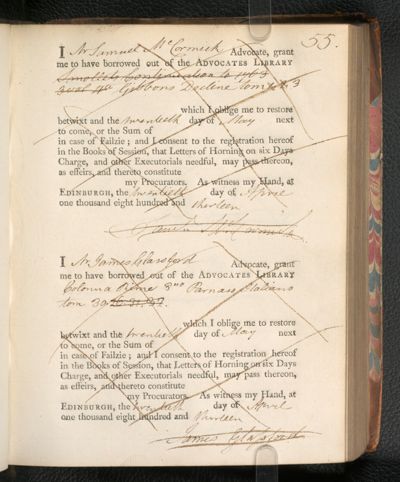 55.
I Mr Samuel McCormick Advocate, grant
me to have borrowed out of the ADVOCATES LIBRARY
Smollets Continuation to
Gibbons Decline tom
which I oblige me to restore
betwixt and the twentieth day of May next
to come, or the Sum of
in case of Failzie; and I consent to the registration hereof
in the Books of Session, that Letters of Horning on six Days
Charge, and other Executorials needful, may pass thereon,
as effeirs, and thereto constitute
my Procurators. As witness my Hand, at
EDINBURGH, the twentieth day of April
one thousand eight hundred and thirteen
I Mr James Glassford Advocate, grant
me to have borrowed out of the ADVOCATES LIBRARY
Colonna Rime 8vo Parnaso Italiano
tom 30
which I oblige me to restore
betwixt and the twentieth day of May next
to come, or the Sum of
in case of Failzie; and I consent to the registration hereof
in the Books of Session, that Letters of Horning on six Days
Charge, and other Executorials needful, may pass thereon,
as effeirs, and thereto constitute
my Procurators. As witness my Hand, at
EDINBURGH, the twentieth day of April
one thousand eight hundred and thirteen
James Glassford